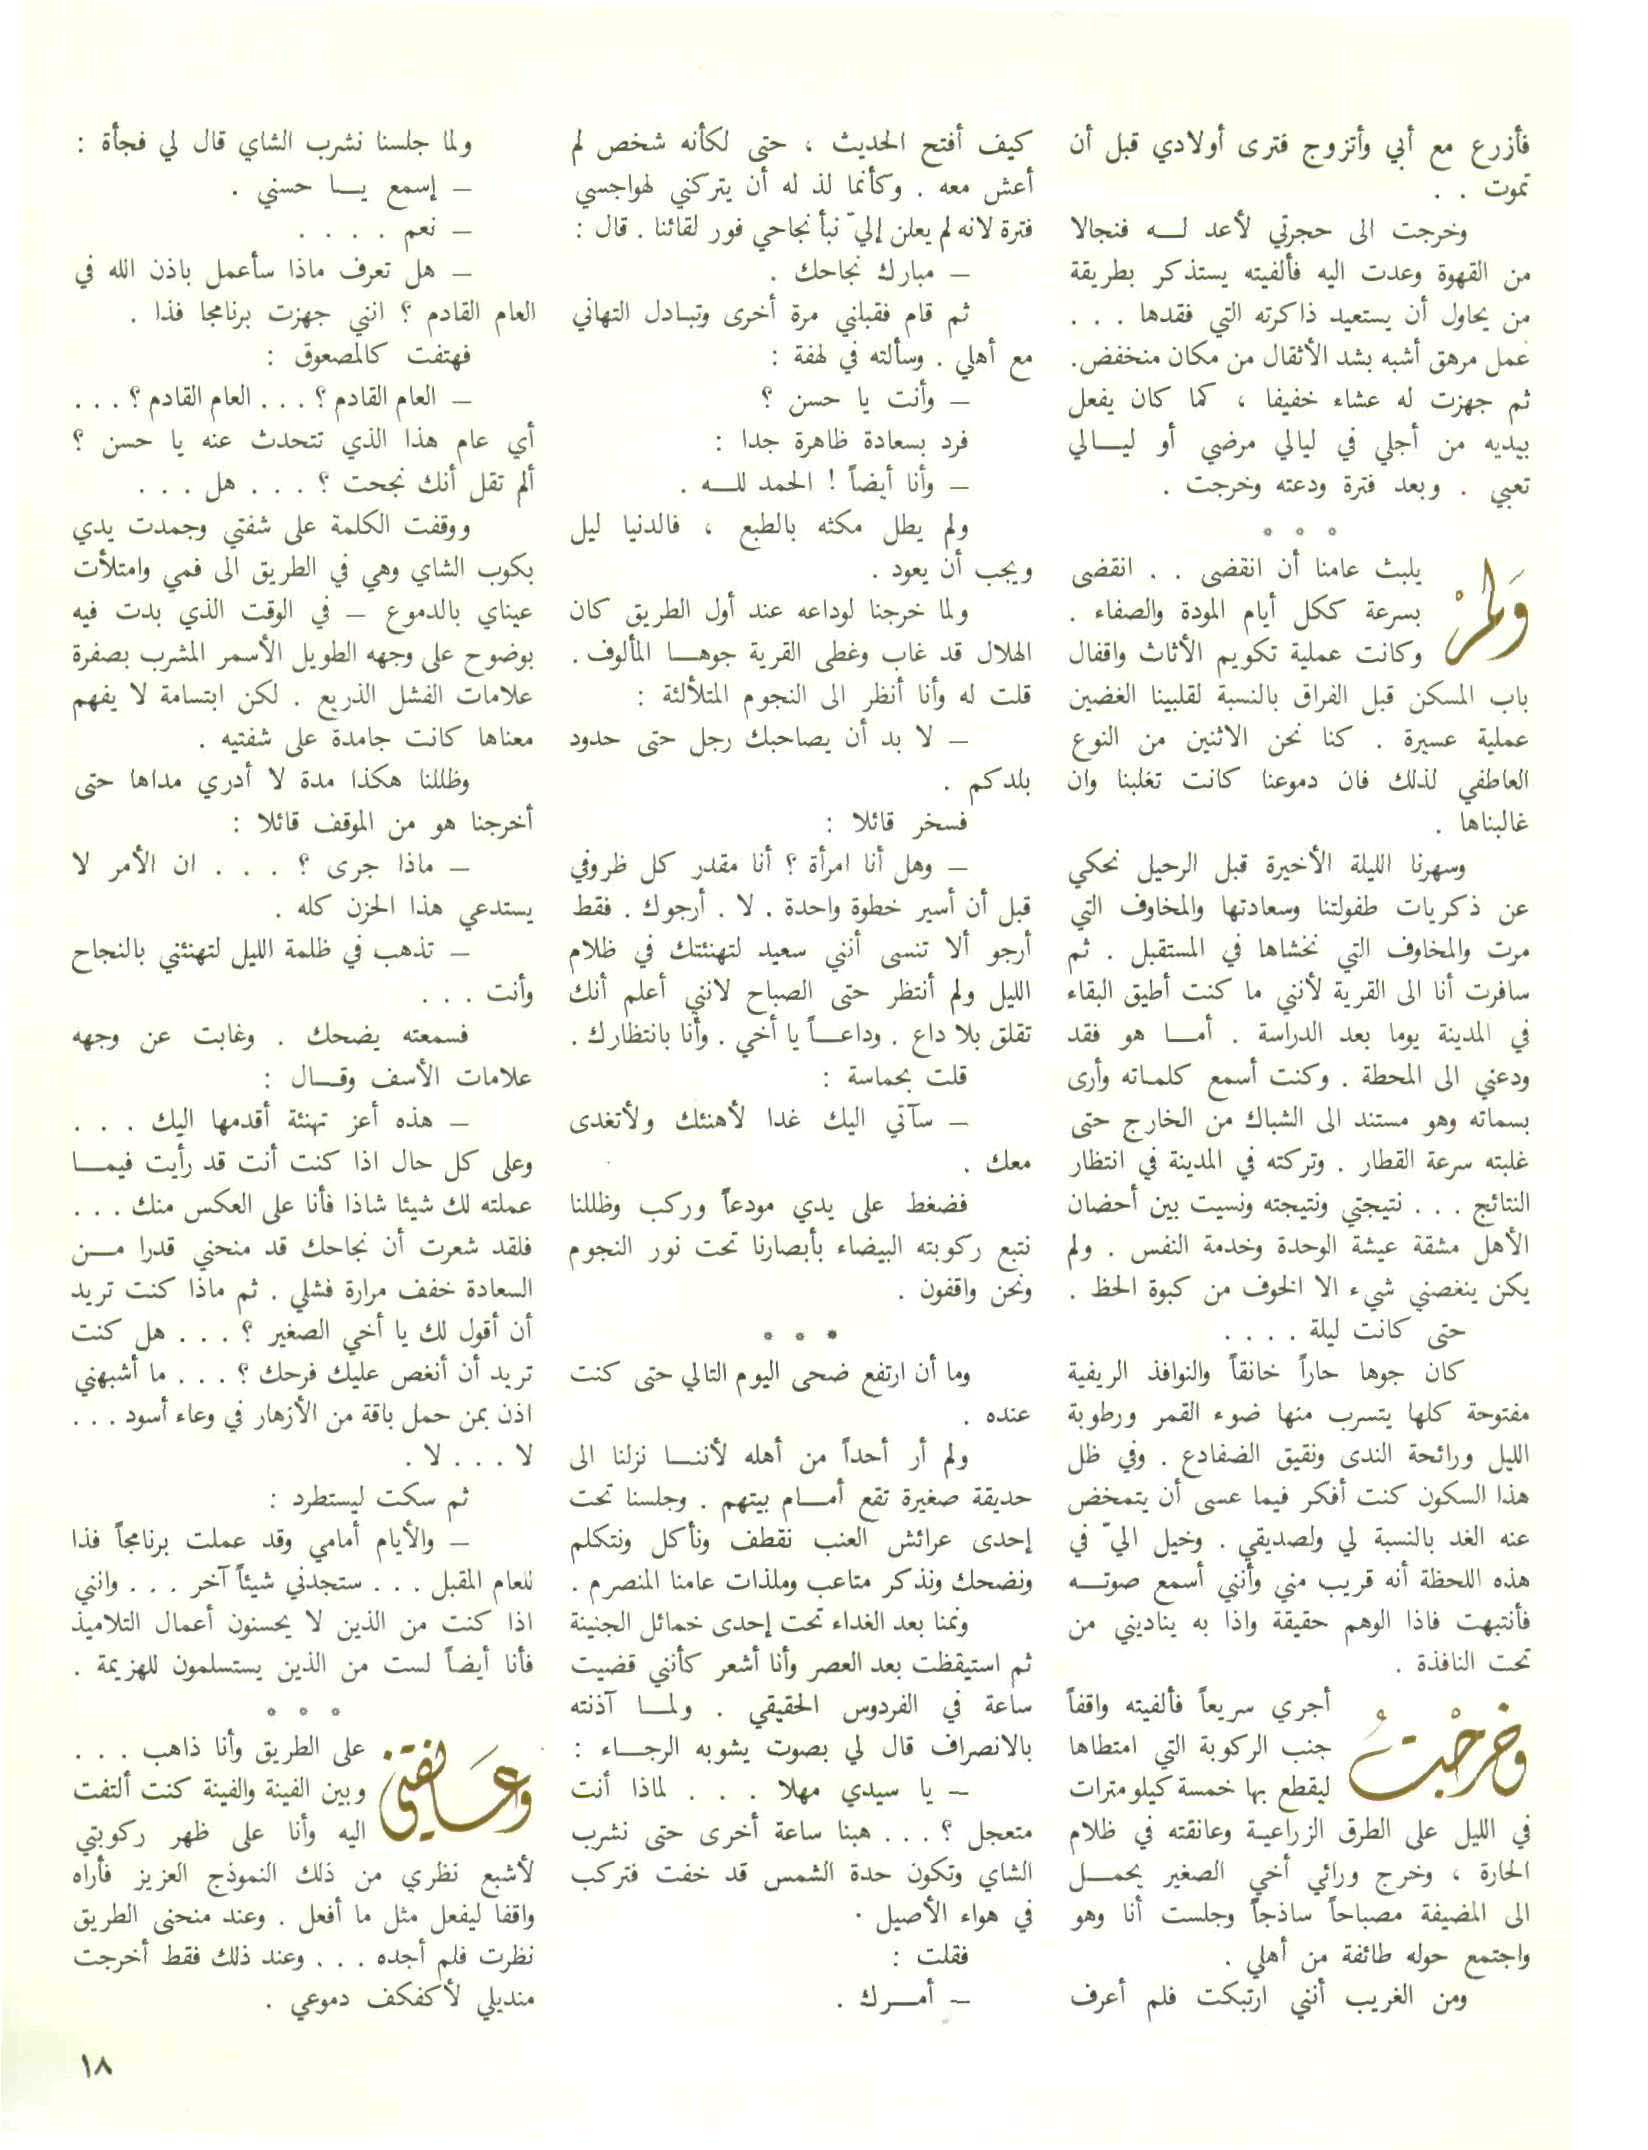 فأزرع مع أبي وأتزوج فترى أولادي قبل أن
تموت . .
وخرجت الى حجرتي لأعد لـــه فنجالا
من القهوة وعدت اليه فألفيته يستذكر بطريقة
من يحاول أن يستعيد ذاكرته التي فقدها . . .
عمل مرهق أشبه بشد الأثقال من مكان منخفض.
ثم جهزت له عشاء خفيفا ، كما كان يفعل
بيديه من أجلي في ليالي مرضي أو ليـــالي
تعبي . وبعد فترة ودعته وخرجت .
° ° °
وَلمْ يلبث عامنا أن انقضى . . انقضى
بسرعة ككل أيام المودة والصفاء .
وكانت عملية تكويم الأثاث واقفال
باب المسكن قبل الفراق بالنسبة لقلبينا الغضين
عملية عسيرة . كنا نحن الاثنين من النوع
العاطفي لذلك فان دموعنا كانت تغلبنا وان
غالبناها .
وسهرنا الليلة الأخيرة قبل الرحيل نحكي
عن ذكريات طفولتنا وسعادتها والمخاوف التي
مرت والمخاوف التي نخشاها في المستقبل . ثم
سافرت أنا الى القرية لأنني ما كنت أطيق البقاء
في المدينة يوما بعد الدراسة . أمـــا هو فقد
ودعني الى المحطة . وكنت أسمع كلماته وأرى
بسماته وهو مستند الى الشباك من الخارج حتى
غلبته سرعة القطار . وتركته في المدينة في انتظار
النتائج . . . نتيجتي ونتيجته ونسيت بين أحضان
الأهل مشقة عيشة الوحدة وخدمة النفس . ولم
يكن ينغصني شيء الا الخوف من كبوة الحظ .
حتى كانت ليلة . . . .
كان جوها حاراً خانقاً والنوافذ الريفية
مفتوحة كلها يتسرب منها ضوء القمر ورطوبة
الليل ورائحة الندى ونقيق الضفادع . وفي ظل
هذا السكون كنت أفكر فيما عسى أن يتمخض
عنه الغد بالنسبة لي ولصديقي . وخيل اليّ في
هذه اللحظة أنه قريب مني وأنني أسمع صوتـــه
فأنتبهت فاذا الوهم حقيقة واذا به يناديني من
تحت النافذة .
وخرجْتُ أجري سريعاً فألفيته واقفاً
جنب الركوبة التي امتطاها
ليقطع بها خمسة كيلومترات
في الليل على الطرق الزراعية وعانقته في ظلام
الحارة ، وخرج ورائي أخي الصغير يحمـــل
الى المضيفة مصباحاً ساذجاً وجلست أنا وهو
واجتمع حوله طائفة من أهلي .
ومن الغريب أنني ارتبكت فلم أعرف
كيف أفتح الحديث ، حتى لكأنه شخص لم
أعش معه . وكأنما لذ له أن يتركني لهواجسي
فترة لانه لم يعلن إليّ نبأ نجاحي فور لقائنا . قال :
– مبارك نجاحك .
ثم قام فقبلني مرة أخرى وتبادل التهاني
مع أهلي . وسألته في لهفة :
– وأنت يا حسن ؟
فرد بسعادة ظاهرة جدا :
– وأنا أيضاً ! الحمد للـــه .
ولم يطل مكثه بالطبع ، فالدنيا ليل
ويجب أن يعود .
ولما خرجنا لوداعه عند أول الطريق كان
الهلال قد غاب وغطى القرية جوهـــا المألوف .
قلت له وأنا أنظر الى النجوم المتلألئة :
– لا بد أن يصاحبك رجل حتى حدود
بلدكم .
فسخر قائلا :
– وهل أنا امرأة ؟ أنا مقدر كل ظروفي
قبل أن أسير خطوة واحدة . لا . أرجوك . فقط
أرجو ألا تنسى أنني سعيد لتهنئتك في ظلام
الليل ولم أنتظر حتى الصباح لانني أعلم أنك
تقلق بلا داع . وداعـــاً يا أخي . وأنا بانتظارك .
قلت بحماسة :
– سآتي اليك غدا لأهنئك ولأتغدى
معك .
فضغط على يدي مودعاً وركب وظللنا
نتبع ركوبته البيضاء بأبصارنا تحت نور النجوم
ونحن واقفون .
° ° °
وما أن ارتفع ضحى اليوم التالي حتى كنت
عنده .
ولم أر أحداً من أهله لأننـــا نزلنا الى
حديقة صغيرة تقع أمـــام بيتهم . وجلسنا تحت
إحدى عرائش العنب نقطف ونأكل ونتكلم
ونضحك ونذكر متاعب وملذات عامنا المنصرم .
ونمنا بعد الغداء تحت إحدى خمائل الجنينة
ثم استيقظت بعد العصر وأنا أشعر كأنني قضيت
ساعة في الفردوس الحقيقي . ولمـــا آذنته
بالانصراف قال لي بصوت يشوبه الرجـــاء :
– يا سيدي مهلا . . . لماذا أنت
متعجل ؟ . . . هبنا ساعة أخرى حتى نشرب
الشاي وتكون حدة الشمس قد خفت فتركب
في هواء الأصيل .
فقلت :
– أمـــرك .
ولما جلسنا نشرب الشاي قال لي فجأة :
– إسمع يـــا حسني .
– نعم . . . .
– هل تعرف ماذا سأعمل باذن الله في
العام القادم ؟ انني جهزت برنامجا فذا .
فهتفت كالمصعوق :
– العام القادم ؟ . . . العام القادم ؟ . . .
أي عام هذا الذي تتحدث عنه يا حسن ؟
ألم تقل أنك نجحت ؟ . . . هل . . .
ووقفت الكلمة على شفتي وجمدت يدي
بكوب الشاي وهي في الطريق الى فمي وامتلأت
عيناي بالدموع – في الوقت الذي بدت فيه
بوضوح على وجهه الطويل الأسمر المشرب بصفرة
علامات الفشل الذريع . لكن ابتسامة لا يفهم
معناها كانت جامدة على شفتيه .
وظللنا هكذا مدة لا أدري مداها حتى
أخرجنا هو من الموقف قائلا :
– ماذا جرى ؟ . . . ان الأمر لا
يستدعي هذا الحزن كله .
– تذهب في ظلمة الليل لتهنئني بالنجاح
وأنت . . .
فسمعته يضحك . وغابت عن وجهه
علامات الأسف وقـــال :
– هذه أعز تهنئة أقدمها اليك . . .
وعلى كل حال اذا كنت أنت قد رأيت فيمـــا
عملته لك شيئا شاذا فأنا على العكس منك . . .
فلقد شعرت أن نجاحك قد منحني قدرا مـــن
السعادة خفف مرارة فشلي . ثم ماذا كنت تريد
أن أقول لك يا أخي الصغير ؟ . . . هل كنت
تريد أن أنغص عليك فرحك ؟ . . . ما أشبهني
اذن بمن حمل باقة من الأزهار في وعاء أسود . . .
لا . . . لا .
ثم سكت ليستطرد :
– والأيام أمامي وقد عملت برنامجاً فذا
للعام المقبل . . . ستجدني شيئاً آخر . . . وانني
اذا كنت من الذين لا يحسنون أعمال التلاميذ
فأنا أيضاً لست من الذين يستسلمون للهزيمة .
° ° °
وعَانقني على الطريق وأنا ذاهب . . .
وبين الفينة والفينة كنت ألتفت
اليه وأنا على ظهر ركوبتي
لأشبع نظري من ذلك النموذج العزيز فأراه
واقفا ليفعل مثل ما أفعل . وعند منحنى الطريق
نظرت فلم أجده . . . وعند ذلك فقط أخرجت
منديلي لأكفكف دموعي .
١٨